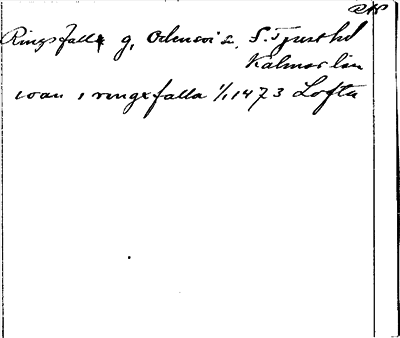 Ringsfalla g, Odensvi sn, S. Tjust hd
Kalmar län
ioan i ringxfalla 1/1 1473 Lofta